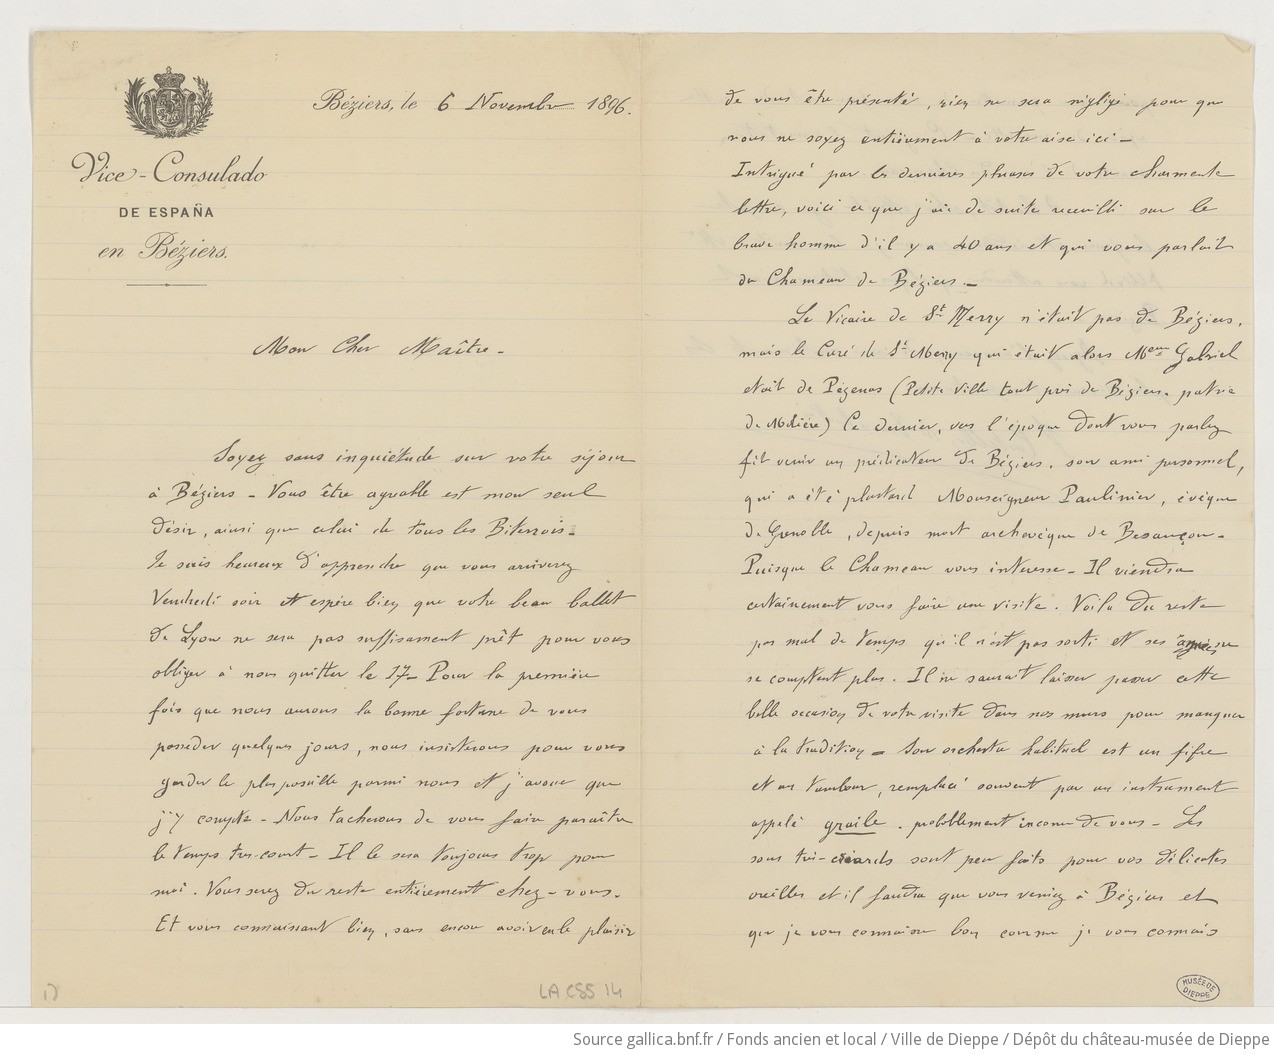 Béziers, le 6 Novembre 1896.
Vice-Consulado
DE ESPAÑA
en Béziers.
Mon Cher Maître -
Soyez sans inquiétude sur votre séjour
à Béziers - Vous être agréable est mon seul
désir, ainsi que celui de tous les Biterrois -
Je suis heureux d'apprendre que vous arriverez
Vendredi soir et espère bien que votre beau ballet
de Lyon ne sera pas suffisament prêt pour vous
obliger à nous quitter le 17 - Pour la première
fois que nous aurons la bonne fortune de vous
posséder quelques jours, nous insisterons pour vous
garder le plus possible parmi nous et j'avoue que
j'y compte - Nous tacherons de vous faire paraître
le temps très-court - Il le sera toujours trop pour
moi. Vous serez du reste entièrement chez-vous.
Et vous connaissant bien, sans encore avoir eu le plaisir
de vous être présenté, rien ne sera négligé pour que
vous ne soyez entièrement à votre aise ici -
Intrigué par les dernières phrases de votre charmante
lettre, voici ce que j'ai de suite recueilli sur le
brave homme d'il y a 40 ans et qui vous parlait
du Chameau de Béziers -
Le Vicaire de St Merry n'était pas de Béziers,
mais le Curé de St Merry qui était alors Gabriel
etait de Pézenas (Petite Ville tout près de Béziers. patrie
de Molière) Ce dernier, vers l'époque dont vous parlez
fit venir un prédicateur de Béziers, son ami personnel,
qui a été plustard Monseigneur Paulinier, évêque
de Grenoble, depuis mort archevêque de Besançon -
Puisque le Chameau vous intéresse - Il viendra
certainement vous faire une visite. Voilà du reste
pas mal de temps qu'il n'est pas sorti et ses années ne
se comptent plus. Il ne saurait laisser passer cette
belle occasion de votre visite dans nos murs pour manquer
à la tradition - Son orchestre habituel est un fifre
et un tambour, remplacé souvent par un instrument
appelé graile. probablement inconnu de vous - Les
sons très-criards sont peu faits pour vos délicates
oreilles et il faudra que vous veniez à Béziers et
que je vous connaisse bon comme je vous connais
1)
LA CSS 14
MUSÉE DE
DIEPPE
Source gallica.bnf.fr / Fonds ancien et local / Ville de Dieppe / Dépôt du château-musée de Dieppe